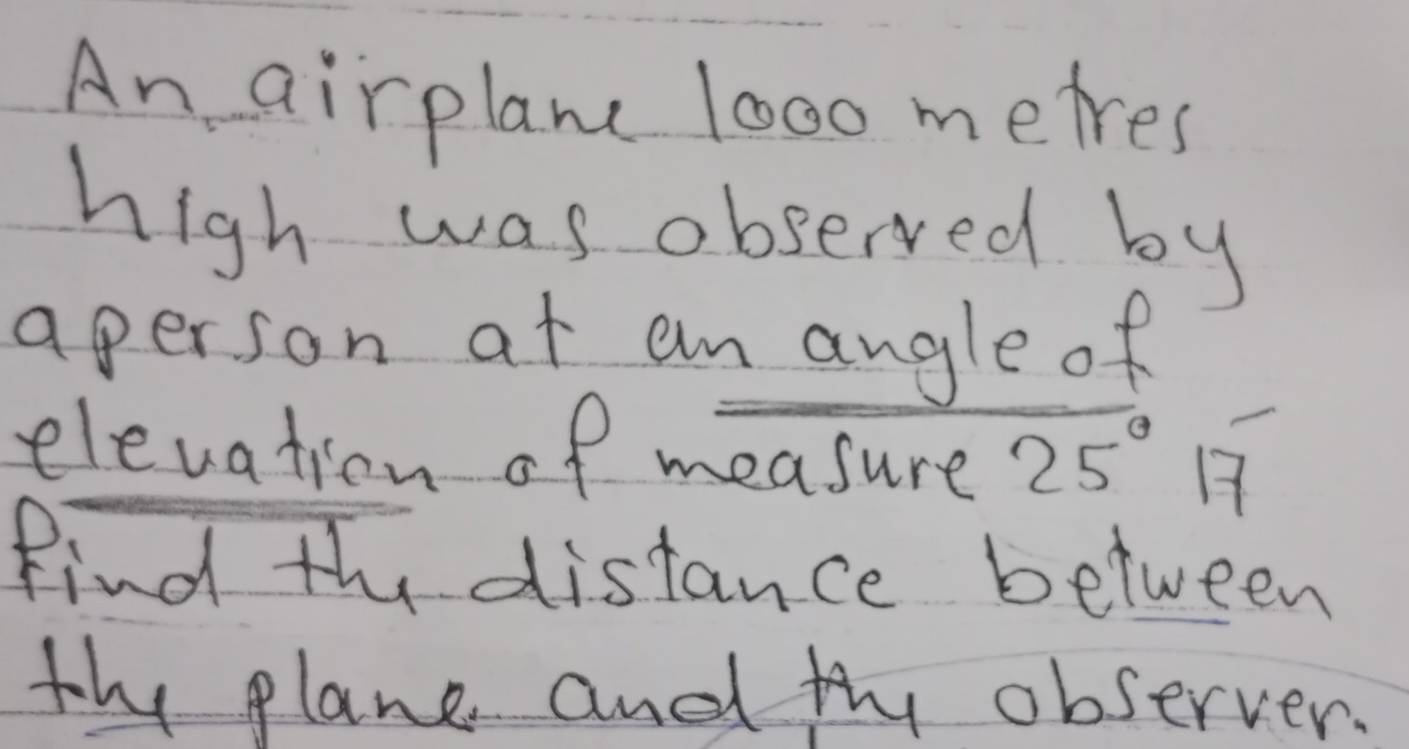 An airplane 1000 metres
high was observed by
a person at an angle of
elevation of measure 25° 17̄
find the distance between
the plane and the observer.